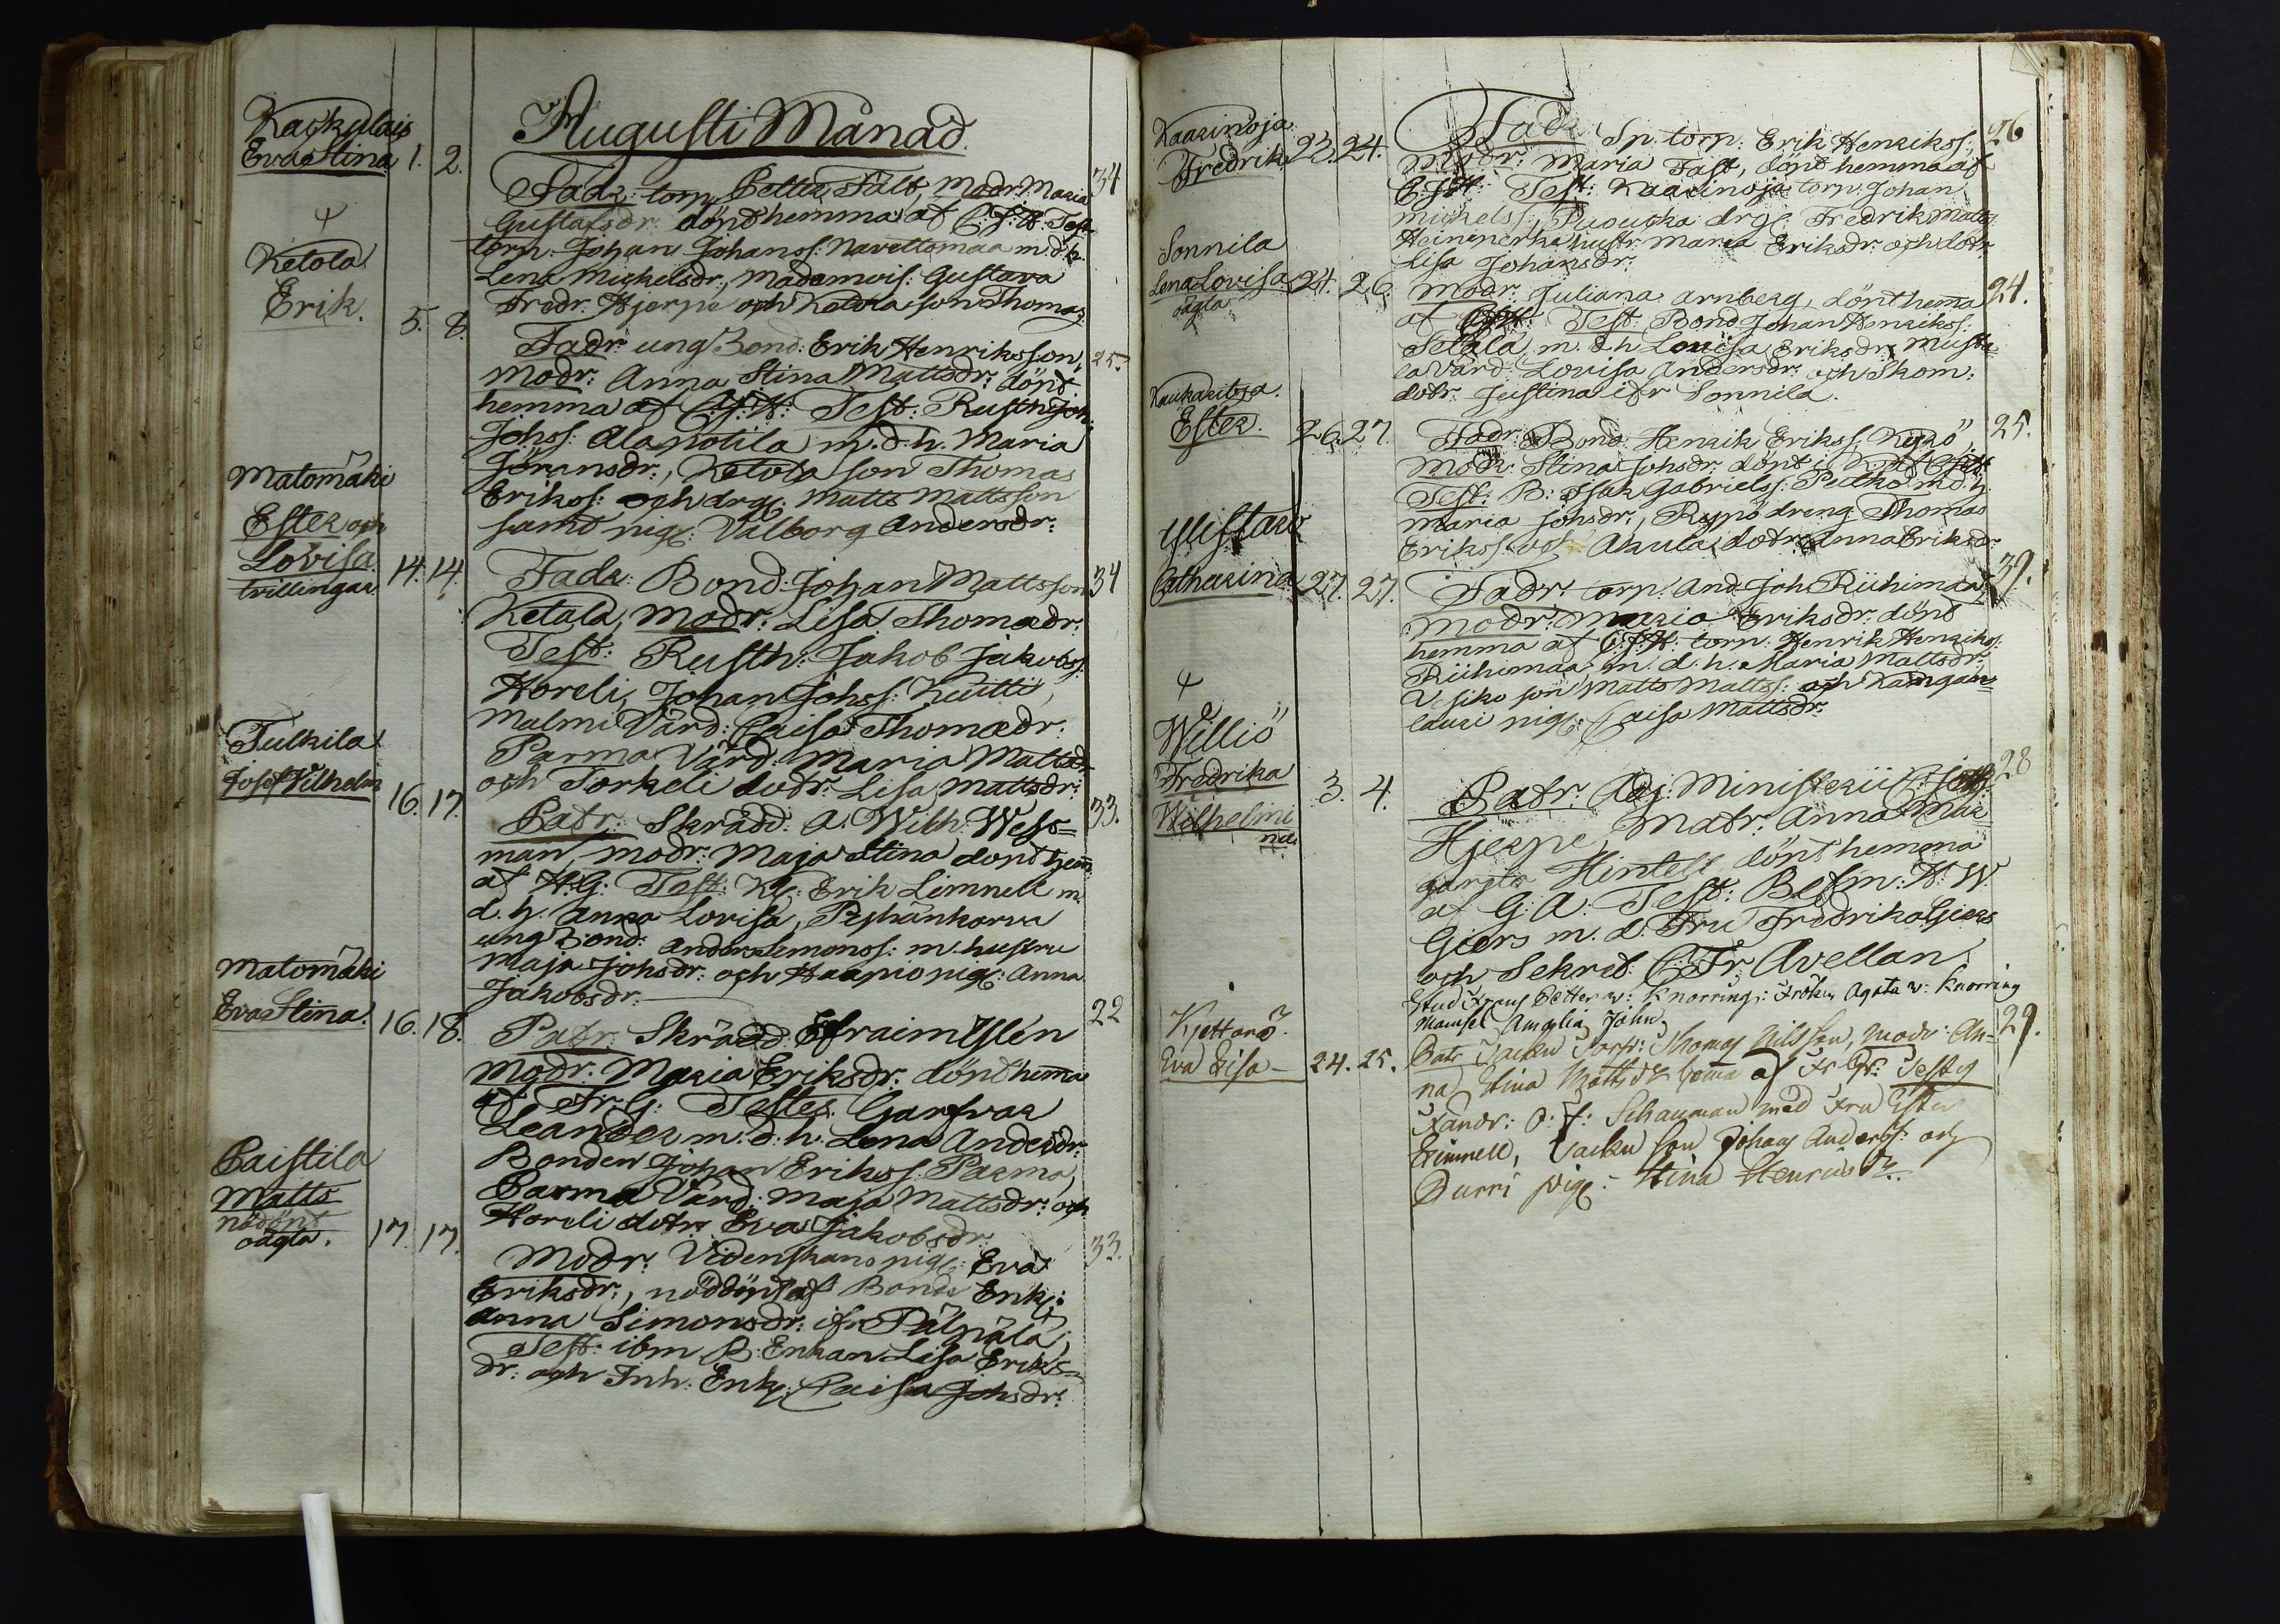 Augusti Månad.
Kaskulais
Eva Stina 1. 2.
Fadr: torp. Petter Fält, Modr: Maria 34
Gustafsdr: dönt hemma af C.J.H. Test
torp. Johan Johanss: Navettomaa m.d.h.
Lena Michelsdr:, Mademois: Gustava
Fredr: Hjerpe och Ketola son Thomas.
Ketola
Erik. 5. 8.
Fadr: ung Bond: Erik Henriksson, 25.
Modr: Anna Stina Mattsdr: dönt
hemma af C.J.H: Test: Rusth: Joh:
Johss: Alapotila m.d.h. Maria
Göransdr:, Ketola son Thomas
Erikss: och drg: Matts Mattsson
samt pig: Valborg Andersdr:
Matomäki
Ester och
Lovisa
tvillingar. 14. 14.
Fadr: Bond: Johan Mattsson 34
Ketala, Modr: Lisa Thomædr:
Test: Rusth: Jakob Jakobss:
Horeli, Johan Johss: Kuitti,
Malmi Värd: Caisa Thomædr:
Parma Värd: Maria Mattsdr
och Torkeli dotr: Lisa Mattsdr:
Tulkila
Josef Vilhelm 16. 17.
Patr: Skrädd: A. Wilh: Wess= 33.
man, modr: Maja Stina dönt hem:
af H.G: Test: Kl: Erik Limnell m.
d.h. Anna Lovisa, Pyhänkorva
ung Bond: Anders Simonss: m. hustru
Maja Johsdr: och Haapio pig: Anna
Jakobsdr:
Matomäki
Eva Stina. 16. 18.
Patr: Skrädd: Efraim Yslén 22
Modr: Maria Eriksdr: dönt hemma
af Fr.G: Testes Garfvar
Leander m.d.h. Lena Andersdr:
Bonden Johan Erikss: Parma,
Parma Värd: Maja Mattsdr: och
Horeli dotr Eva Jakobsdr:
Paistila
Matts
nöddönt
oägta. 17. 17.
Modr: Videnskans pig: Eva 33.
Eriksdr:, nöddönt af Bonde Enk:
Anna Simonsdr: ifr Pälpälä,
Test: ibm B: Enkan Lisa Eriks=
dr: och Inh: Enk: Caisa Johsdr:
Kaarinoja
Fredrik 23. 24.
Fadr: Sp. torp: Erik Henrikss:, 26
Modr: Maria Fast, dönt hemma af
C.J.H: Test: Kaarinoja torp: Johan
Michelss:, drg: Fredrik Matts:
hustr: Maria Eriksdr: och dotr
Lisa Johansdr:
Sonnila
Lena Lovisa 24. 26.
oägta
Modr: Juliana Arnberg, dönt hemma 24.
af C.J.H. Test: Bond: Johan Henrikss:
m.d.h. Lovisa Eriksdr: Musta=
Värd: Lovisa Andersdr: och Skom:
dotr: Justina ifr Sonnila.
Kaukaritsa.
Ester. 26. 27.
Fadr: Bond: Henrik Erikss: 25.
Modr: Stina Johsdr: dönt i af C.J.H.
Test: B: Isak Gabrielss: m.d.h.
Maria Johsdr:, dreng Thomas
Erikss: och Akula dotr Anna Eriksdr:
Ylistaro
Catharina 27. 27.
Fadr: torp. And. Joh: Riihimaa, 39.
Modr: Maria Eriksdr: dönt
hemma af C.J.H: torp. Henrik Henrikss:
Riihimaa m.d.h. Maria Mattsdr:,
Vesiko son Matts Mattss: och Kangan=
lauri pig: Caisa Mattsdr:
Williö
Fredrika
Wilhelmi
na 3. 4.
Patr: Adj: Ministerii C. Joh: 28
Hjerpe, Matr: Anna Mar=
gareta Hintell dönt hemma
af G.A. Test: Befm: H.W.
Giers m.d. Fru Fredrika Giers
och Sekret: C.Fr: Avellan,
Stud Frans Petter v: Knorring: Fröken Agata v: Knorring
Mamsel Amalia Jahn,
Kjettarö.
Eva Lisa – 24. 25.
Patr Torp: Thomas Nilsson, Modr: An= 29.
na Stina Mattsdr hemma af Fr.G: Testes
O.J: Schauman med Fru Ester
Limnell, son Johan Anderss: och
Purri pig: Stina Henriksdr.